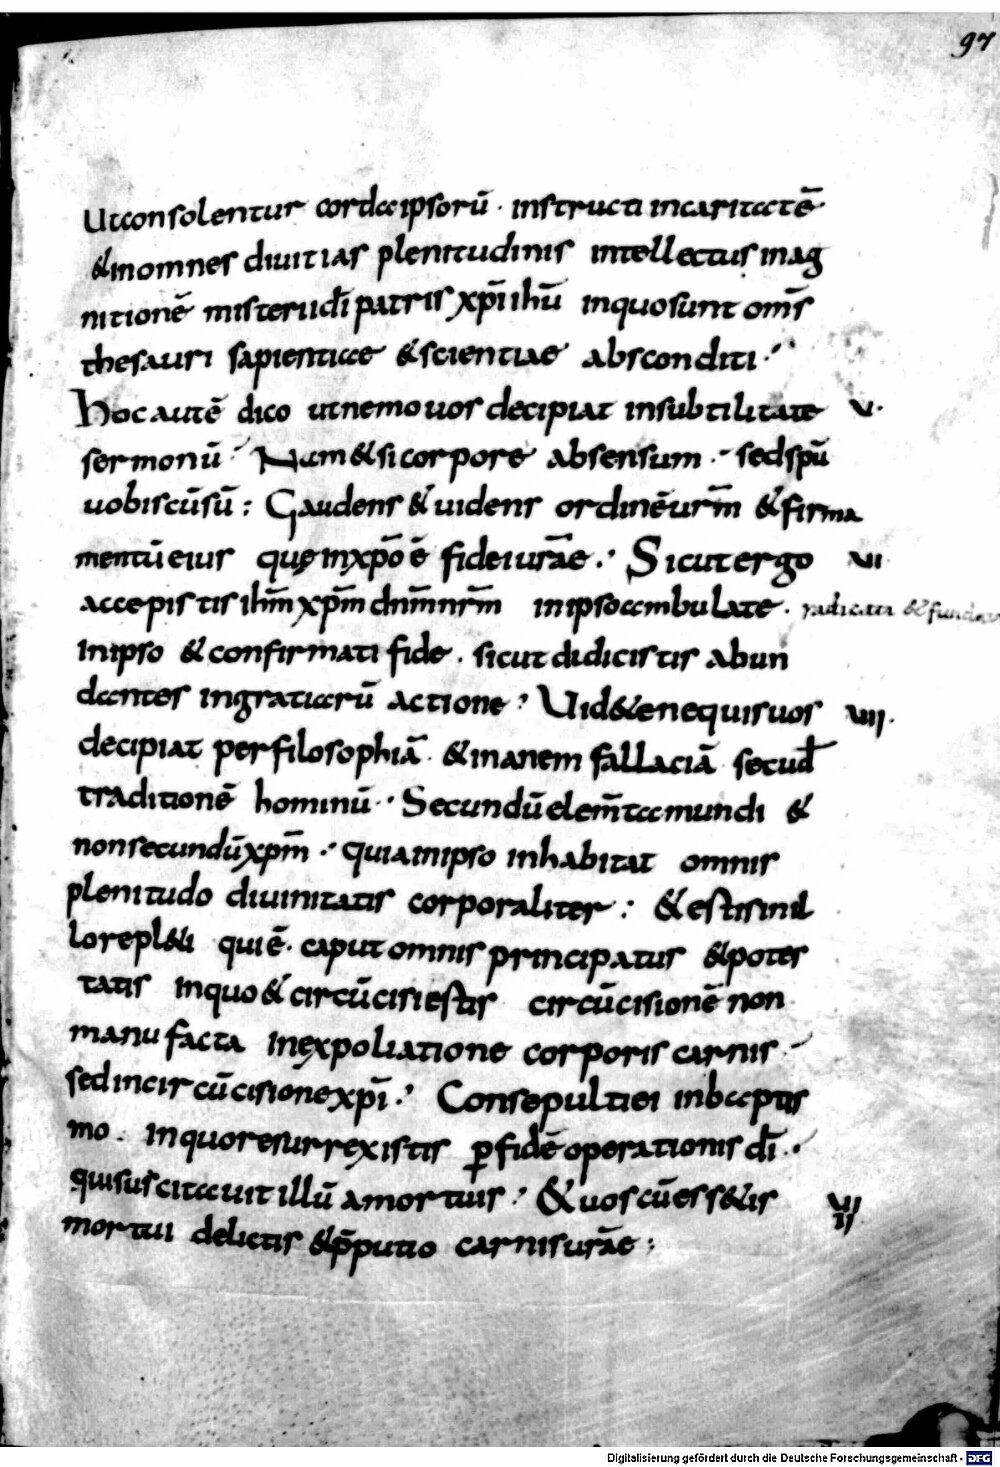 97
Utconsolentur cordaipsorū · instructi incaritatē
&inomnes diuitias plenitudinis intellectus inag
nitionē misteriidī patris xp̄iihū inquosunt om̄s
thesauri sapientiae &scientiae absconditi ·
Hocautē dico utnemouos decipiat insubtilitate v·
sermonū · Nam&sicorpore absensum · sedspū
uobiscūsū : Gaudens &uidens ordinēurm̄ &firma
mentūeius quęinxp̄o ē fideiurāe · Sicutergo vi
accepistis ihm̄xpm̄dnm̄nrm̄ inipsoambulate · radicati &fundati
inipso &confirmati fide · sicutdidicistis abun
dantes ingratiarū actione · Uid&enequisuos viii·
decipiat perfilosophiā · &inanem fallaciā secud̄
traditionē hominū · Secundūelem̄tamundi &
nonsecundūxpm̄ · quiainipso inhabitat omnis
plenitudo diuinitatis corporaliter : &estisinil
lorepl&i quiē · caputomnis principatus &potes
tatis inquo&circūcisiestis circūcisionē non
manufacta inexpoliatione corporis carnis ·
sedincircūcisionexp̄i · Consepultiei inbaptis
mo · inquoresurrexistis p̱fidēoperationis dī ·
quisuscitauitillū amortuis · &uoscūess&is vii
ii
mortui delictis &p̄putio carnisurāe :
Digitalisierung gefördert durch die Deutsche Forschungsgemeinschaft - DFG